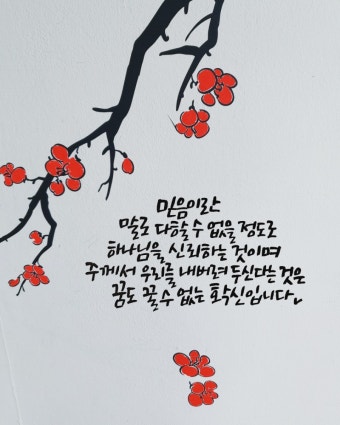 믿음이란
말로 다할 수 없을 정도로
하나님을 신뢰하는 것이며
주께서 우리를 내버려 두신다는 것은
꿈도 꿀 수 없는 확신입니다.